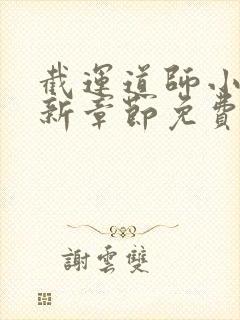 截運道師小
新章節免費
謝雲雙